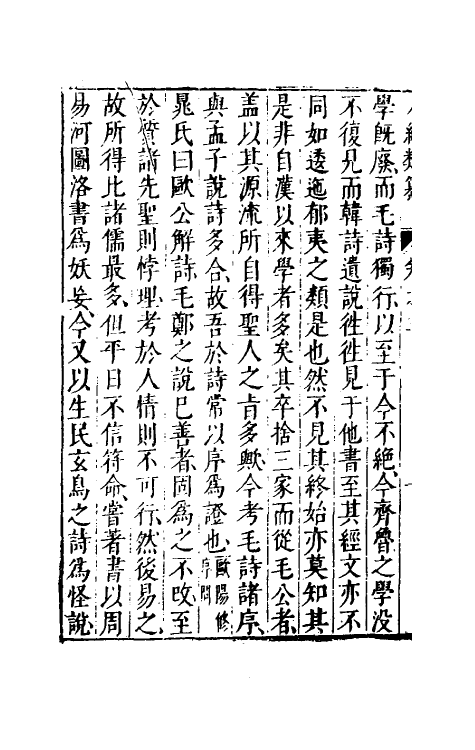 學旣廢而毛詩獨行、以至于今不絕、今齊魯之學没
不復見而韓詩遺說徃徃見于他書至其經文亦不
同如逶迤郁夷之類是也然不見其終始亦莫知其
是非自漢以來學者多矣其卒捨三家而從毛公者、
盖以其源流所自得聖人之㫖多歟今考毛詩諸序、
與孟子說詩多合、故吾於詩常以序爲證也、歐陽修序問
晁氏曰歐公解詩、毛鄭之說已善者、固爲之不改至
於質諸先聖則悖理、考於人情則不可行、然後易之、
故所得比諸儒最多、但平日不信符命、嘗著書以周
易河圖洛書爲妖妄、今又以生民玄鳥之詩爲怪說、